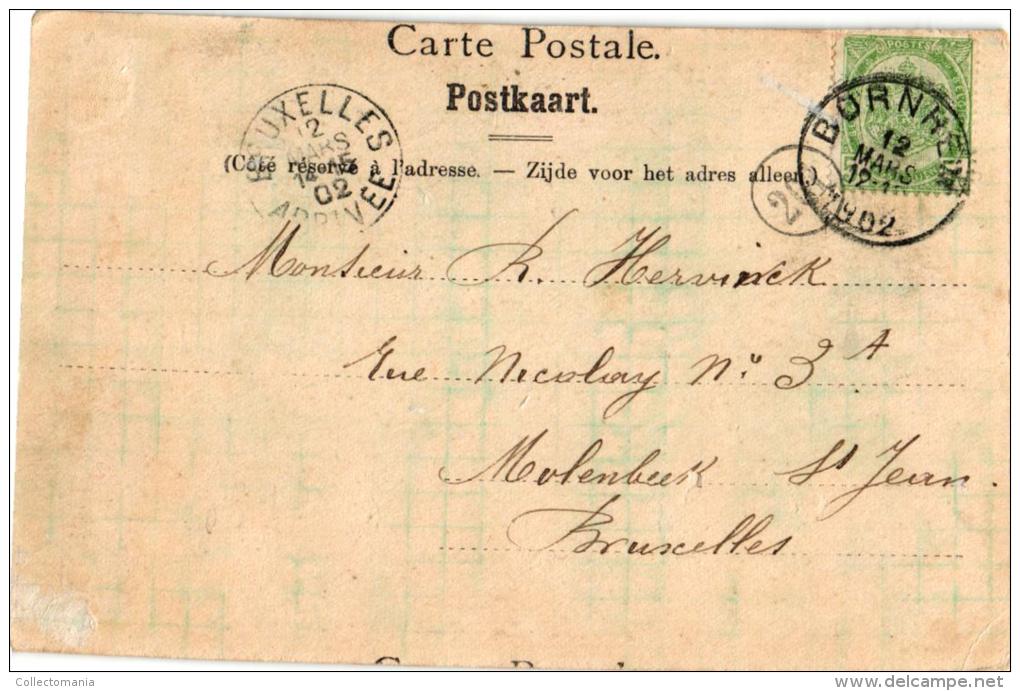 Carte Postale.
Postkaart.
(Côté réservé à l'adresse. — Zijde voor het adres alleen.)
POSTES
BORNHEM
12
MARS
12-
1902
BRUXELLES
12
MARS
14
02
ARRIVEE
Monsieur R. Hervinck
Rue Nicolay N° 3 A
Molenbeek St Jean.
Bruxelles
Collectomania
www.delcampe.net